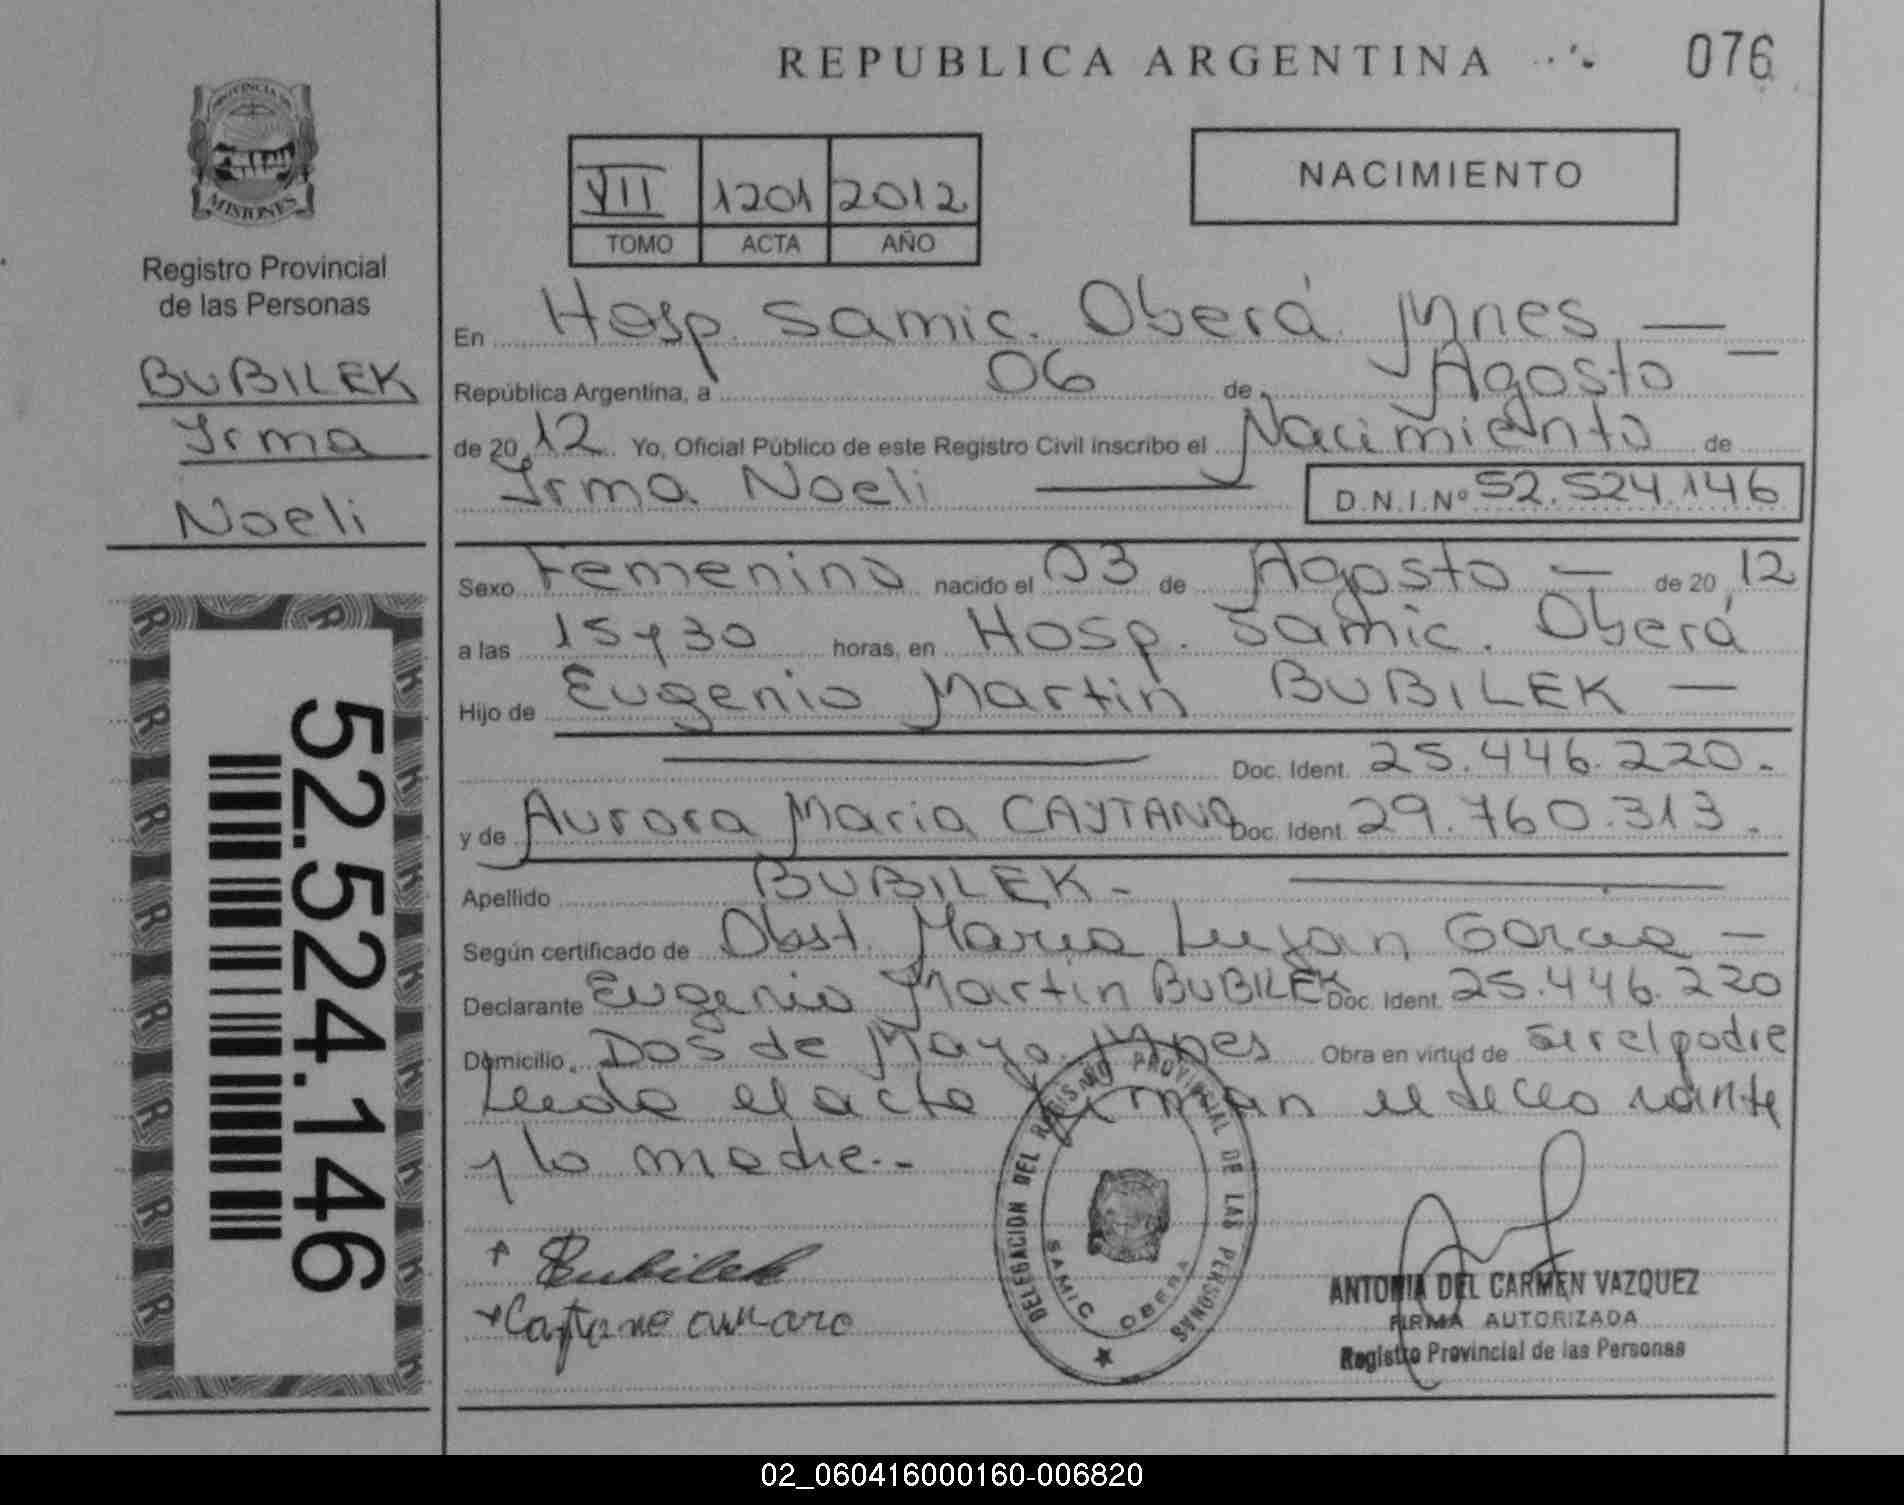 REPUBLICA ARGENTINA
076
PROVINCIA DE
MISIONES
Registro Provincial
de las Personas
BUBILEK
Irma
Noeli
52.524.146
VII 1201 2012
TOMO ACTA AÑO
NACIMIENTO
En Hosp. Samic. Oberá Mnes —
República Argentina, a 06 de Agosto —
de 2012 Yo, Oficial Público de este Registro Civil inscribo el Nacimiento de
Irma Noeli D.N.I.Nº 52.524.146
Sexo Femenino nacido el 03 de Agosto — de 2012
a las 15 y 30 horas, en Hosp. Samic. Oberá
Hijo de Eugenio Martin BUBILEK —
Doc. Ident. 25.446.220.
y de Aurora Maria CAYTANO Doc. Ident. 29.760.313.
Apellido BUBILEK -
Según certificado de Obst. Maria Lujan Garcia —
Declarante Eugenio Martin BUBILEK Doc. Ident. 25.446.220
Domicilio Dos de Mayo. Mnes Obra en virtud de ser el padre
Leida el acta firman el declarante
y la madre.-
Bubilek
Caytano
DELEGACION DEL REGISTRO PROVINCIAL DE LAS PERSONAS
SAMIC OBERA
ANTONIA DEL CARMEN VAZQUEZ
FIRMA AUTORIZADA
Registro Provincial de las Personas
02_060416000160-006820